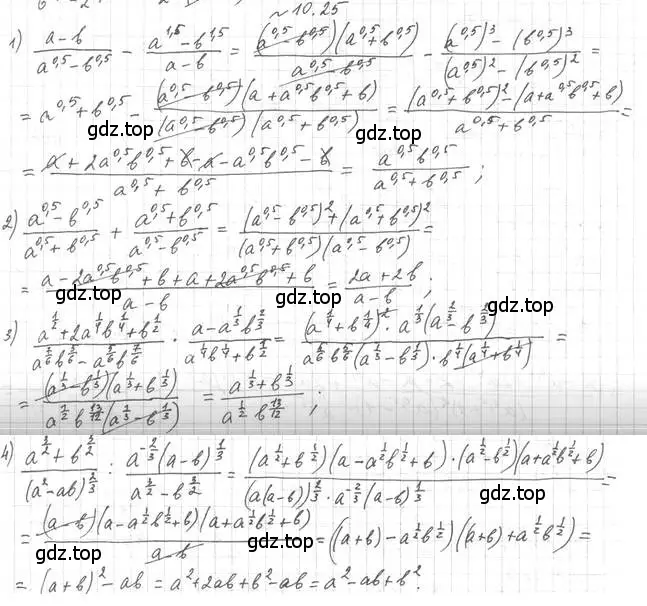 ~ 10.25
1) (a-b)/(a^0,5-b^0,5) - (a^1,5-b^1,5)/(a-b) = ((a^0,5-b^0,5)(a^0,5+b^0,5))/(a^0,5-b^0,5) - ((a^0,5)^3-(b^0,5)^3)/((a^0,5)^2-(b^0,5)^2) =
= a^0,5+b^0,5 - ((a^0,5-b^0,5)(a+a^0,5b^0,5+b))/((a^0,5-b^0,5)(a^0,5+b^0,5)) = ((a^0,5+b^0,5)^2-(a+a^0,5b^0,5+b))/(a^0,5+b^0,5) =
gdz.top gdz.top
= (a+2a^0,5b^0,5+b-a-a^0,5b^0,5-b)/(a^0,5+b^0,5) = (a^0,5b^0,5)/(a^0,5+b^0,5) ;
2) (a^0,5-b^0,5)/(a^0,5+b^0,5) + (a^0,5+b^0,5)/(a^0,5-b^0,5) = ((a^0,5-b^0,5)^2+(a^0,5+b^0,5)^2)/((a^0,5+b^0,5)(a^0,5-b^0,5)) =
gdz.top gdz.top
= (a-2a^0,5b^0,5+b+a+2a^0,5b^0,5+b)/(a-b) = (2a+2b)/(a-b) ;
gdz.top gdz.top
3) (a^1/2+2a^1/4b^1/4+b^1/2)/(a^5/6b^5/6-a^5/6b^7/6) · (a-a^1/3b^2/3)/(a^1/4b^1/4+b^1/2) = ((a^1/4+b^1/4)^2·a^1/3(a^2/3-b^2/3))/(a^5/6b^5/6(a^1/3-b^1/3)·b^1/4(a^1/4+b^1/4)) =
= ((a^1/3-b^1/3)(a^1/3+b^1/3))/(a^1/2b^13/12(a^1/3-b^1/3)) = (a^1/3+b^1/3)/(a^1/2b^13/12) ;
gdz.top gdz.top
4) (a^3/2+b^3/2)/((a^2-ab)^2/3) : (a^-2/3(a-b)^1/3)/(a^3/2-b^3/2) = ((a^1/2+b^1/2)(a-a^1/2b^1/2+b)·(a^1/2-b^1/2)(a+a^1/2b^1/2+b))/((a(a-b))^2/3·a^-2/3(a-b)^1/3) =
= ((a-b)(a-a^1/2b^1/2+b)(a+a^1/2b^1/2+b))/(a-b) = ((a+b)-a^1/2b^1/2)((a+b)+a^1/2b^1/2) =
gdz.top gdz.top
= (a+b)^2-ab = a^2+2ab+b^2-ab = a^2-ab+b^2.